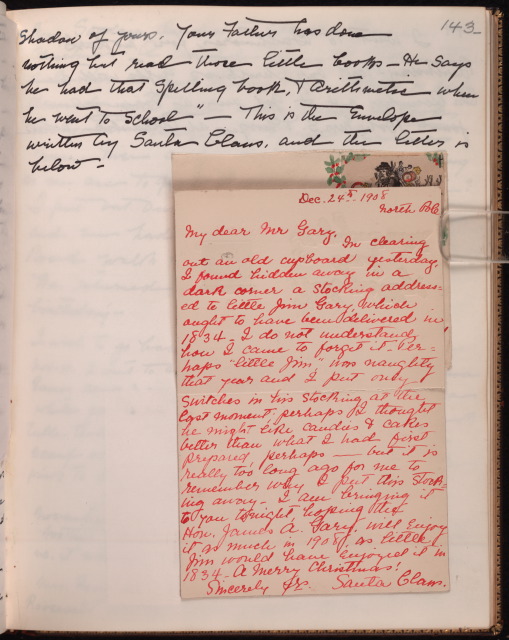 143
Shadow of yours. Your Father has done
nothing but read those little books - He says
he had that Spelling book, & Arithmetic when
he went to School" - This is the Envelope
written by Santa Claus, and the letter is
below -
Dec. 24th 1908
North Pole
My dear Mr Gary,
In clearing
out an old cupboard yesterday,
I found hidden away in a
dark corner a stocking address-
ed to little Jim Gary, which
ought to have been delivered in
1834. I do not understand
how I came to forget it - Per-
haps "little Jim" was naughty
that year and I put only
switches in his stocking at the
last moment perhaps I thought
he might like candies & cakes
better than what I had first
prepared perhaps - but it is
really too long ago for me to
remember why I put this stock-
ing away - I am bringing it
to you tonight hoping the
Hon. James A. Gary will enjoy
it as much in 1908, as little
Jim would have enjoyed it in
1834 - A Merry Christmas!
Sincerely Yrs
Santa Claus.